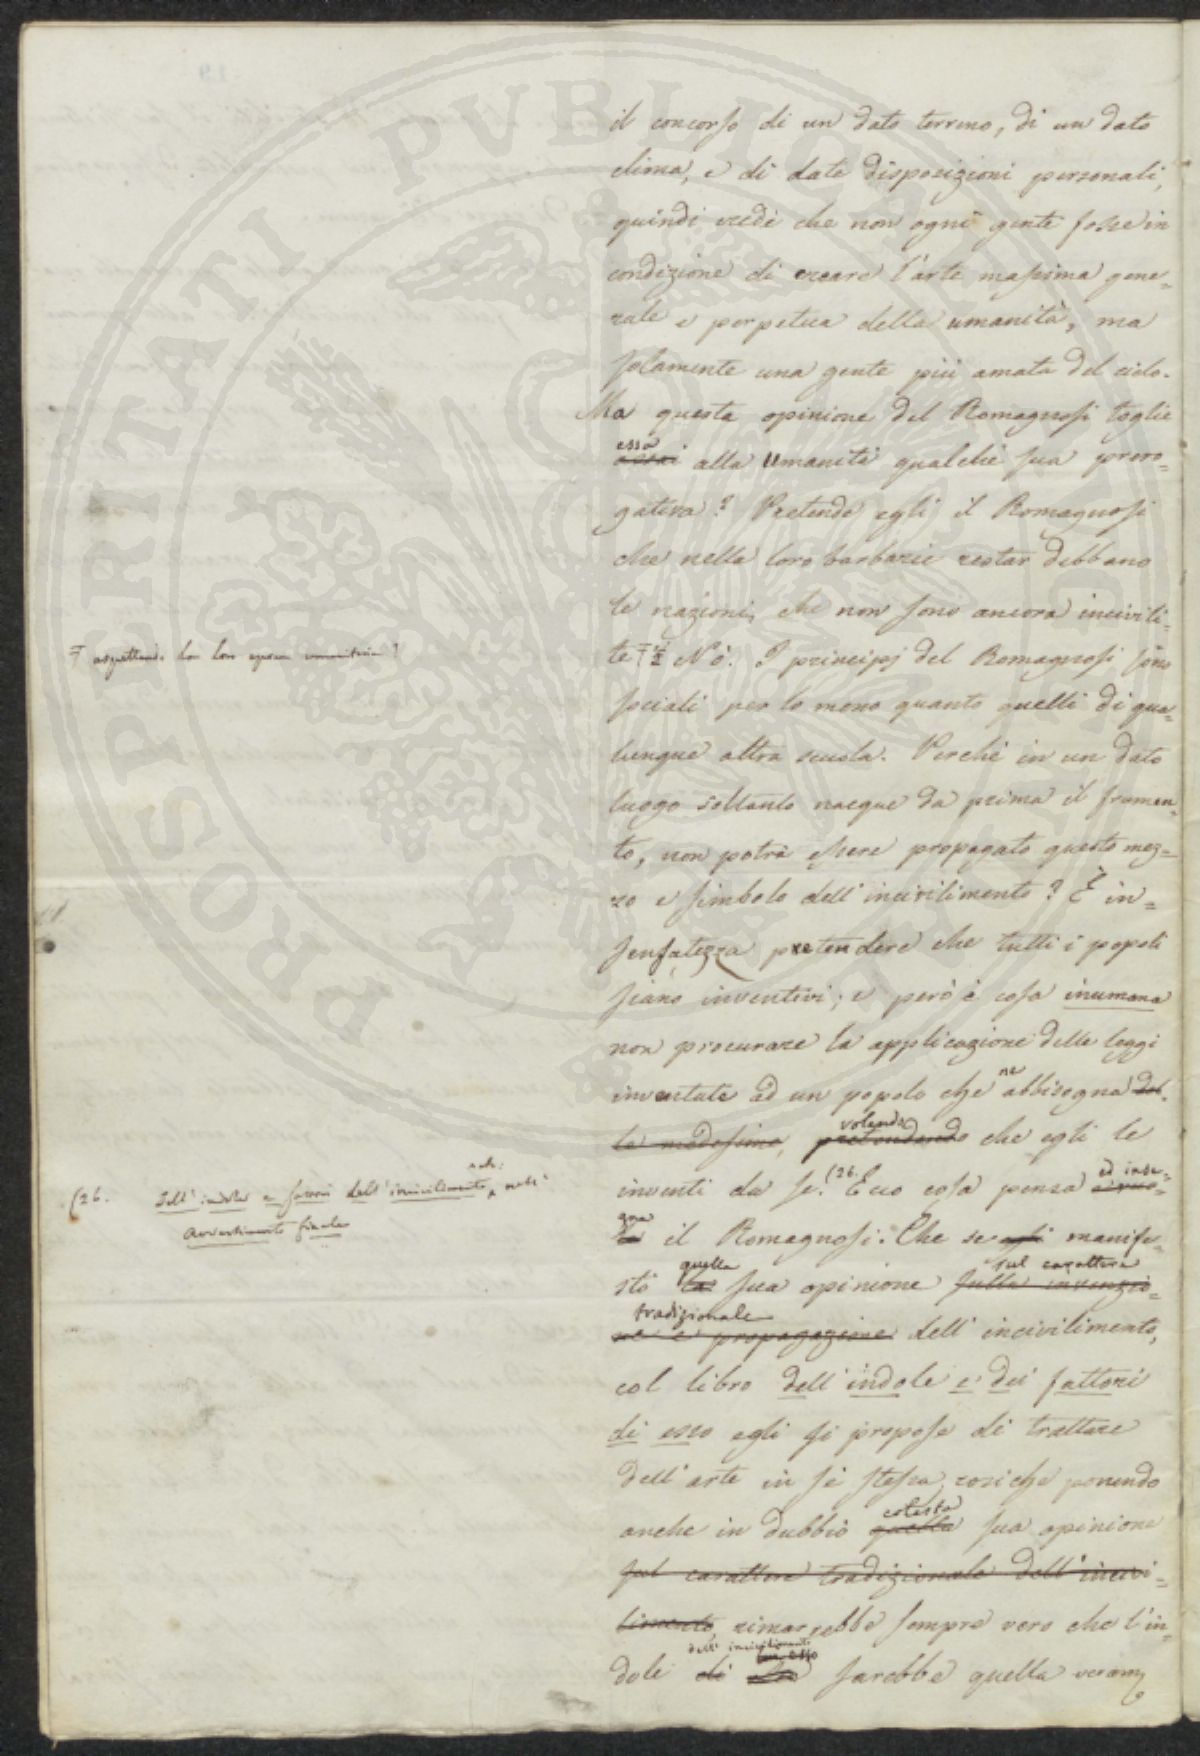 il concorso di un dato terreno, di un dato
clima, e di date disposizioni personali,
quindi vede che non ogni gente fosse in
condizione di creare l'arte massima gene=
rale e perpetua della umanità, ma
solamente una gente più amata del cielo.
Ma questa opinione del Romagnosi toglie
essa
alla Umanità qualche sua prero=
gativa? Pretende egli il Romagnosi
che nella loro barbarie restar debbano
le nazioni, che non sono ancora incivili=
te Nò. I principj del Romagnosi sono
aspettando la loro
sociali per lo meno quanto quelli di qua=
lunque altra scuola. Perchè in un dato
luogo soltanto nacque da prima il frumen=
to, non potrà essere propagato questo mez=
zo e simbolo dell'incivilimento? È in=
sensatezza pretendere che tutti i popoli
siano inventivi; e però è cosa inumana
non procurare la applicazione delle leggi
ne
inventate ad un popolo che abbisogna del=
volendo
le medesime, pretendendo che egli le
ed inse=
inventi da se. (26. Ecco cosa pensa
(26. Dell'indole e fattori dell'incivilimento
Avvertimento finale
gna
il Romagnosi. Che se egli manife=
quella sul carattere
stò la sua opinione sulla invenzio=
tradizionale
ne e propagazione dell'incivilimento,
col libro dell'indole e dei fattori
di esso egli si propose di trattare
dell'arte in sè stessa, cosicchè ponendo
cotesta
anche in dubbio quella sua opinione
sul carattere tradizionale dell'incivi=
limento, rimarrebbe sempre vero che l'in=
dell'incivilimento
dole di sarebbe quella
PROSPERITATI PVBLICAE